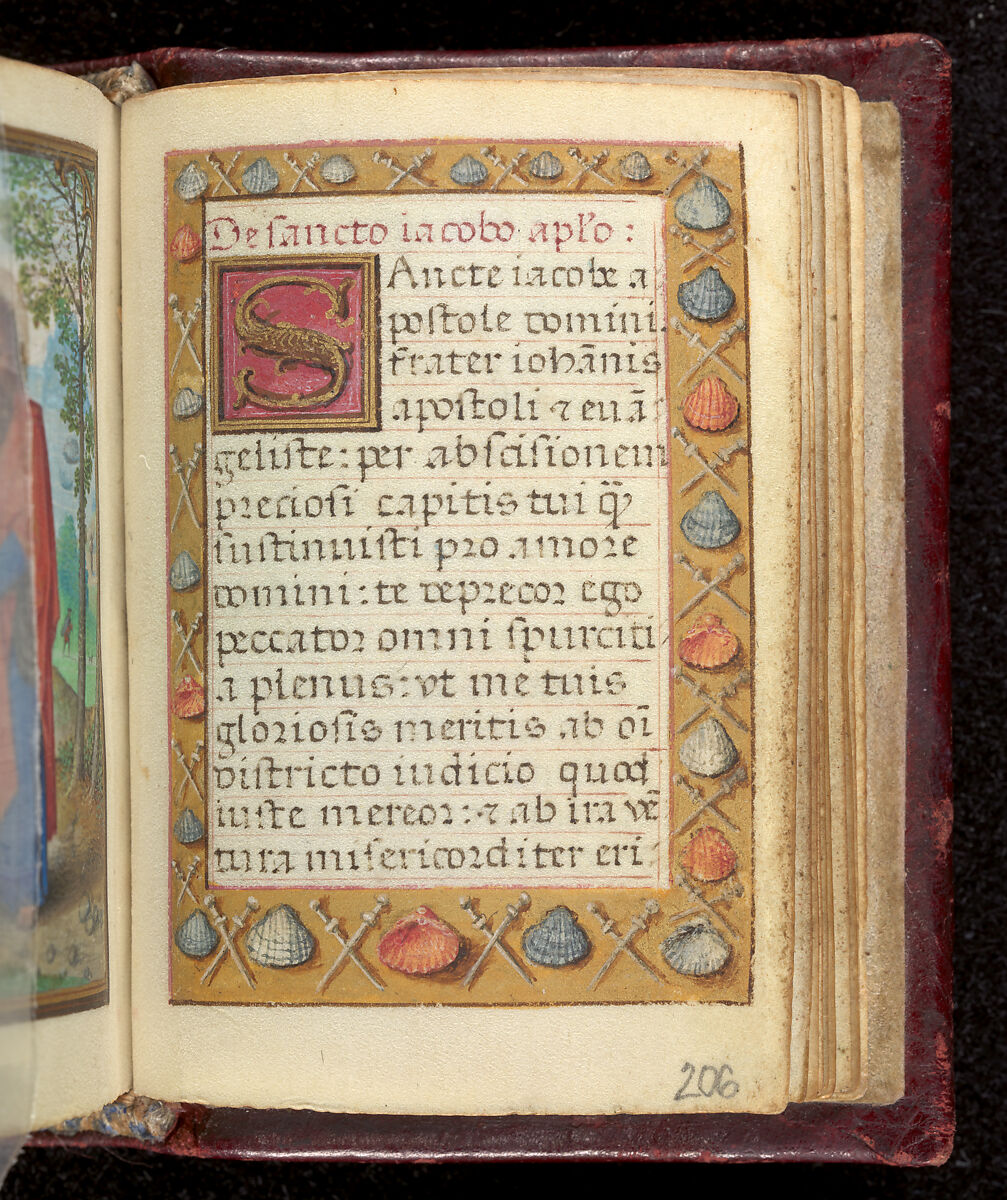 De sancto iacobo apl'o :
SAncte iacobe a
postole domini.
frater ioha̅nis
apostoli ⁊ eua̅
geliste : per abscisionem
preciosi capitis tui qu̅
sustinuisti pro amore
domini : te deprecor ego
peccator omni spurciti
a plenus : ut me tuis
gloriosis meritis ab oi̅
districto iudicio quod
iuste mereor : ⁊ ab ira ve̅
tura misericorditer eri
206